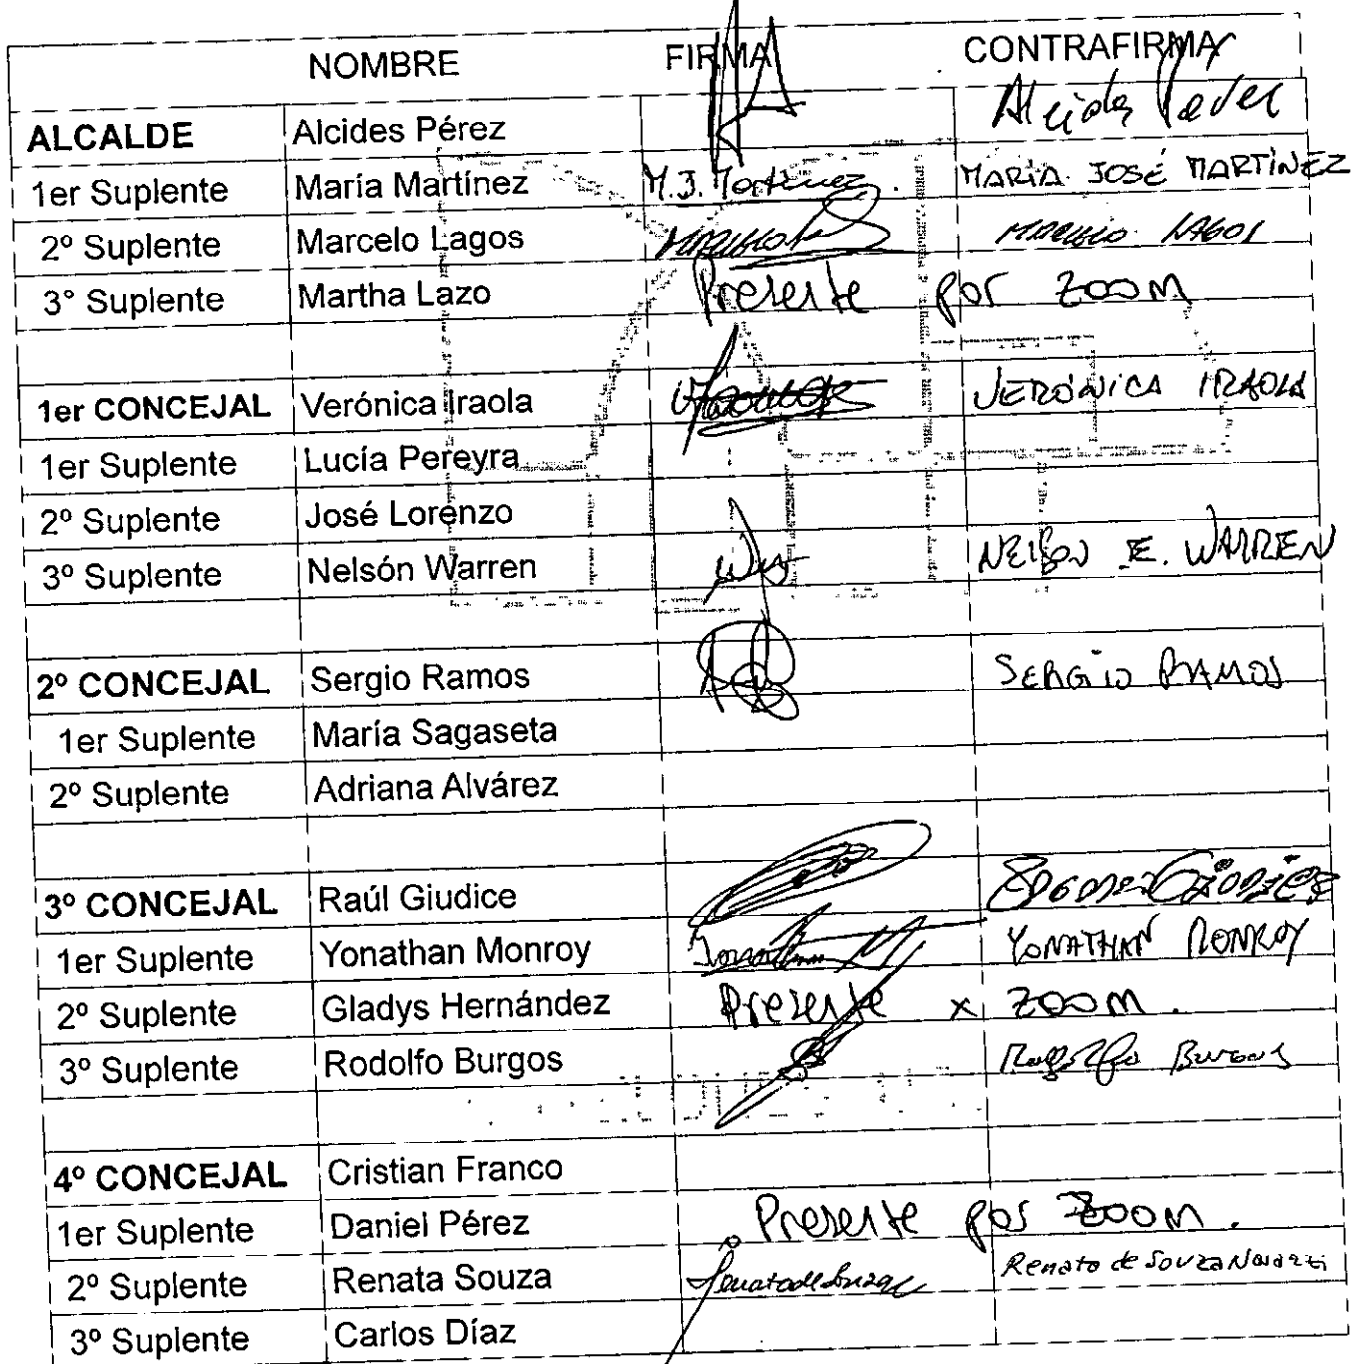 NOMBRE FIRMA CONTRAFIRMA
ALCALDE Alcides Pérez Alcides
1er Suplente María Martínez M.J. Martínez. MARÍA JOSÉ MARTÍNEZ
2º Suplente Marcelo Lagos MARCELO LAGOS
3° Suplente Martha Lazo Presente por zoom
1er CONCEJAL Verónica Iraola VERÓNICA IRAOLA
1er Suplente Lucía Pereyra
2º Suplente José Lorenzo
3º Suplente Nelsón Warren NELSON E. WARREN
2º CONCEJAL Sergio Ramos SERGIO RAMOS
1er Suplente María Sagaseta
2º Suplente Adriana Alvárez
3º CONCEJAL Raúl Giudice
1er Suplente Yonathan Monroy YONATHAN MONROY
2º Suplente Gladys Hernández Presente x zoom.
3º Suplente Rodolfo Burgos Rodolfo Burgos
4º CONCEJAL Cristian Franco
1er Suplente Daniel Pérez Presente por zoom.
2º Suplente Renata Souza Renata de Souza
3º Suplente Carlos Díaz